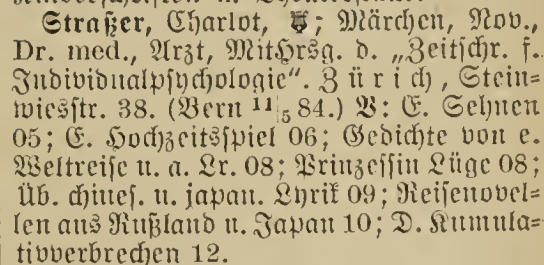 Straßer, Charlot, ; Märchen, Nov.,
Dr. med., Arzt, Mithrsg. d. „Zeitschr. f.
Individualpsychologie“. Zürich, Stein-
wiesstr. 38. (Bern 11/5 84.) W: E. Sehnen
05; E. Hochzeitsspiel 06; Gedichte von e.
Weltreise u. a. Lr. 08; Prinzessin Lüge 08;
Üb. chines. u. japan. Lyrik 09; Reisenovel-
len aus Rußland u. Japan 10; D. Kumula-
tivverbrechen 12.